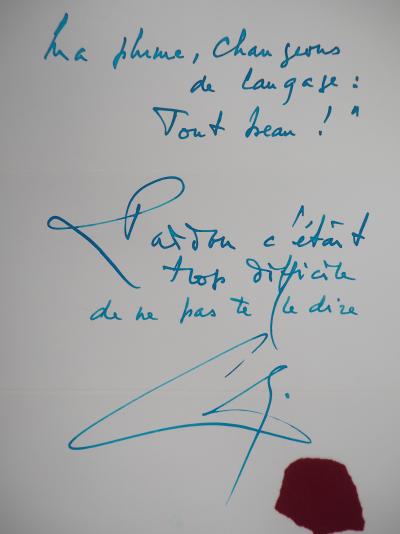 Ma plume, changeons
de langage :
Tout beau ! "
Pardon c'était
trop difficile
de ne pas te le dire